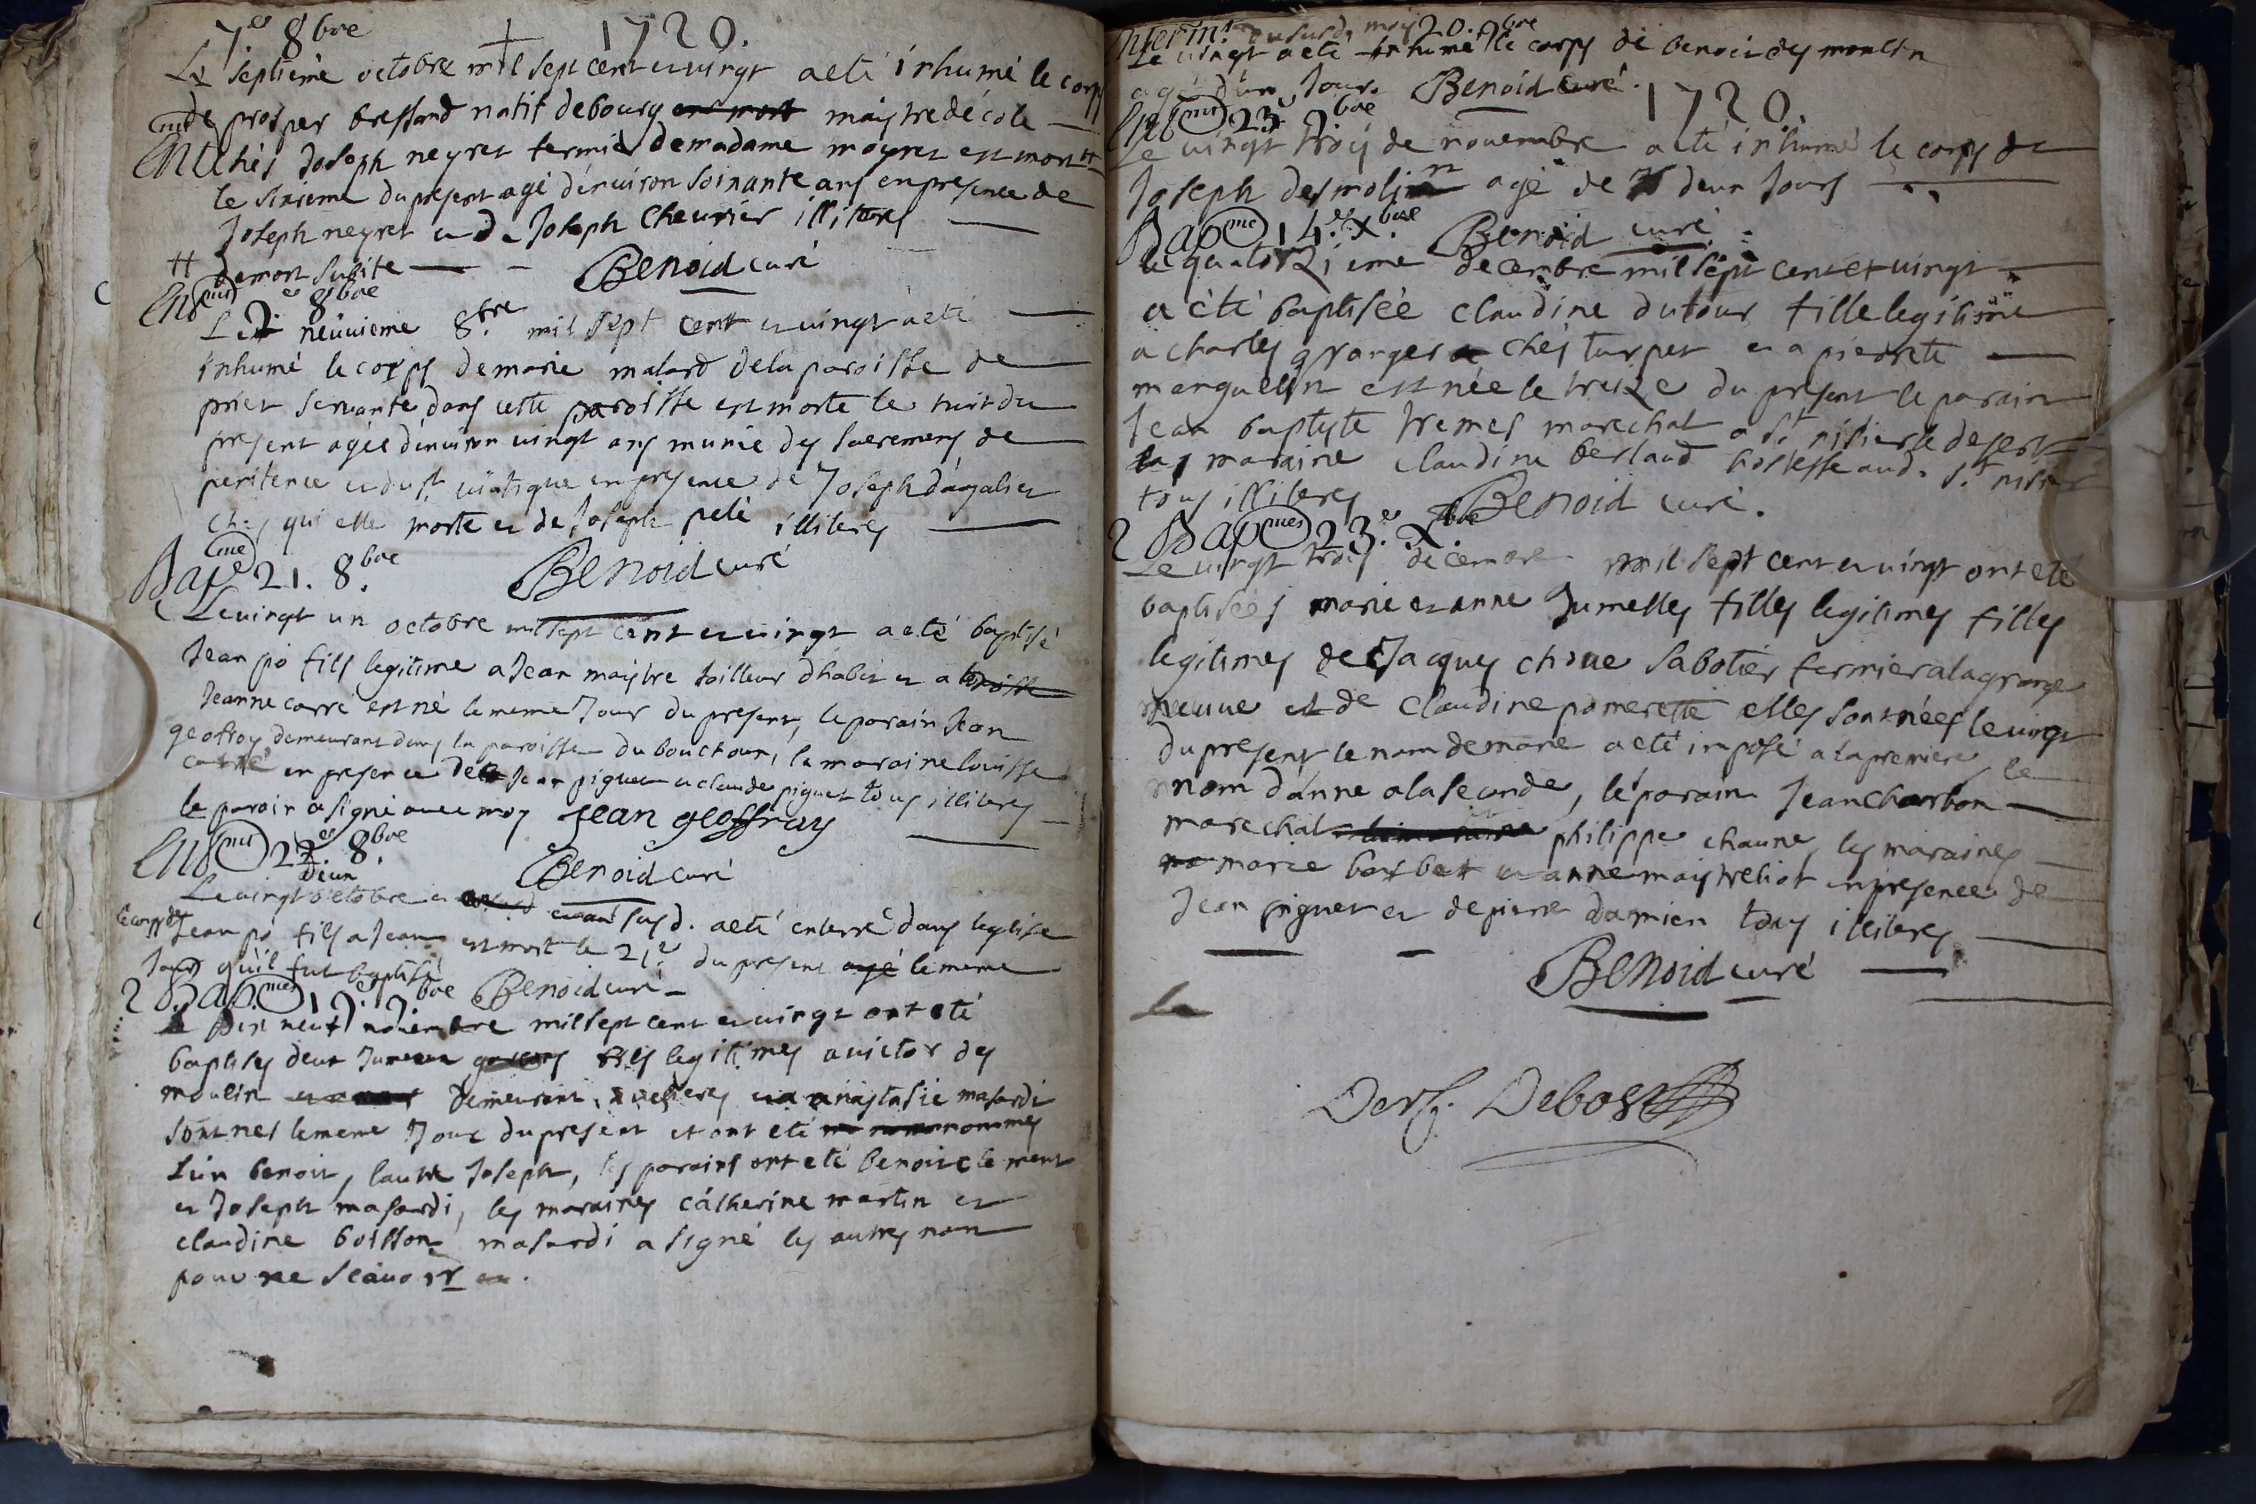 7e 8bre + 1720.
Le septieme octobre mil sept cent et vingt a eté inhumé le corps
de prosper bressand natif de bourg maistre décole
Ent chés Joseph neyret fermier de madame moyret est mort #
le sixieme du present agé dénuiron soixante ans en presence de
Joseph neyret et de Joseph Cheurier illiteres
# de mort subite Benoid curé
Ent 9e 8bre
Le neuuieme 8bre mil sept cent et vingt a eté
inhumé le corps de marie malard de la paroisse de
priet seruante dans cette paroisse est morte le huit du
present agée dénuiron vingt ans munie des sacremens de
penitence et du st uiatique en presence de Joseph dágalier
chés qui elle morte et de Joseph pelé illiteres
Bapme 21. 8bre Benoid curé
Le vingt un octobre mil sept cent et vingt a eté baptisé
Jean po fils legitime a Jean maistre tailleur dhabit et a
Jeanne carré est né le meme Jour du present, le parain Jean
geoffroy demeurant dans la paroisse du bouchoux, la maraine louisse
carré en presence de Jean piguet et claude piguet tous illiteres
le parain a signé auec moy Jean geoffray
Ent 22e 8bre Benoid curé
deux
Le vingt octobre et an susd. a eté enterré dans leglise
le corps de Jean po fils a Jean est mort le 21e du present le meme
Jour qu'il fut baptisé Benoid curé
2 Bapmes 19e 9bre
Le Dix neuf nouiembre mil sept cent et vingt ont eté
baptises deux Jumeaux fils legitimes a uictor des
moulin demeurant a anastasie masardi
sont nes le meme Jour du present et ont eté nommes
L'un benoit, lautre Joseph, les parains ont eté benoit clement
et Joseph masardi, les maraines cátherine martin et
claudine boisson masardi a signé les autres non
pour ne scauoir
Enterrmt 20. 9bre
Le vingt a eté inhumé le corps de benoit des moulin
agé d'un Jour. Benoid curé.
Ent 23e 9bre 1720.
Le vingt troys de nouembre a eté inhumé le corps de
Joseph desmolin agé de deux Jours
Bapme 14e Xbre Benoid curé
Le quatorzieme decembre mil sept cent et vingt
a été baptisée claudine dutour fille legitime
a charles granger chés turpet et a pierrete
manguelin est née le treize du present le parain
Jean baptiste tremes marechal a st nisier le desert
la maraine claudine berland hostesse aud. st nisier
tous illiteres Benoid curé.
2 Bapmes 23e Xbre
Le vingt troys decembre mil sept cent et vingt ont eté
baptisées marie et anne Jumelles filles legitimes filles
legitimes de Jacques choue sabotier fermier a la grange
neuue et de claudine pomerette elles sont nées le vingt
du present le nom de marie a eté imposé a la premiere le
nom dánne a la seconde, le parain Jean charbon
marechal philippe chaune, les maraines
marie barbet et anne maistreliot en presence de
Jean piguet et de pierre damien tous illiteres
Benoid curé
La